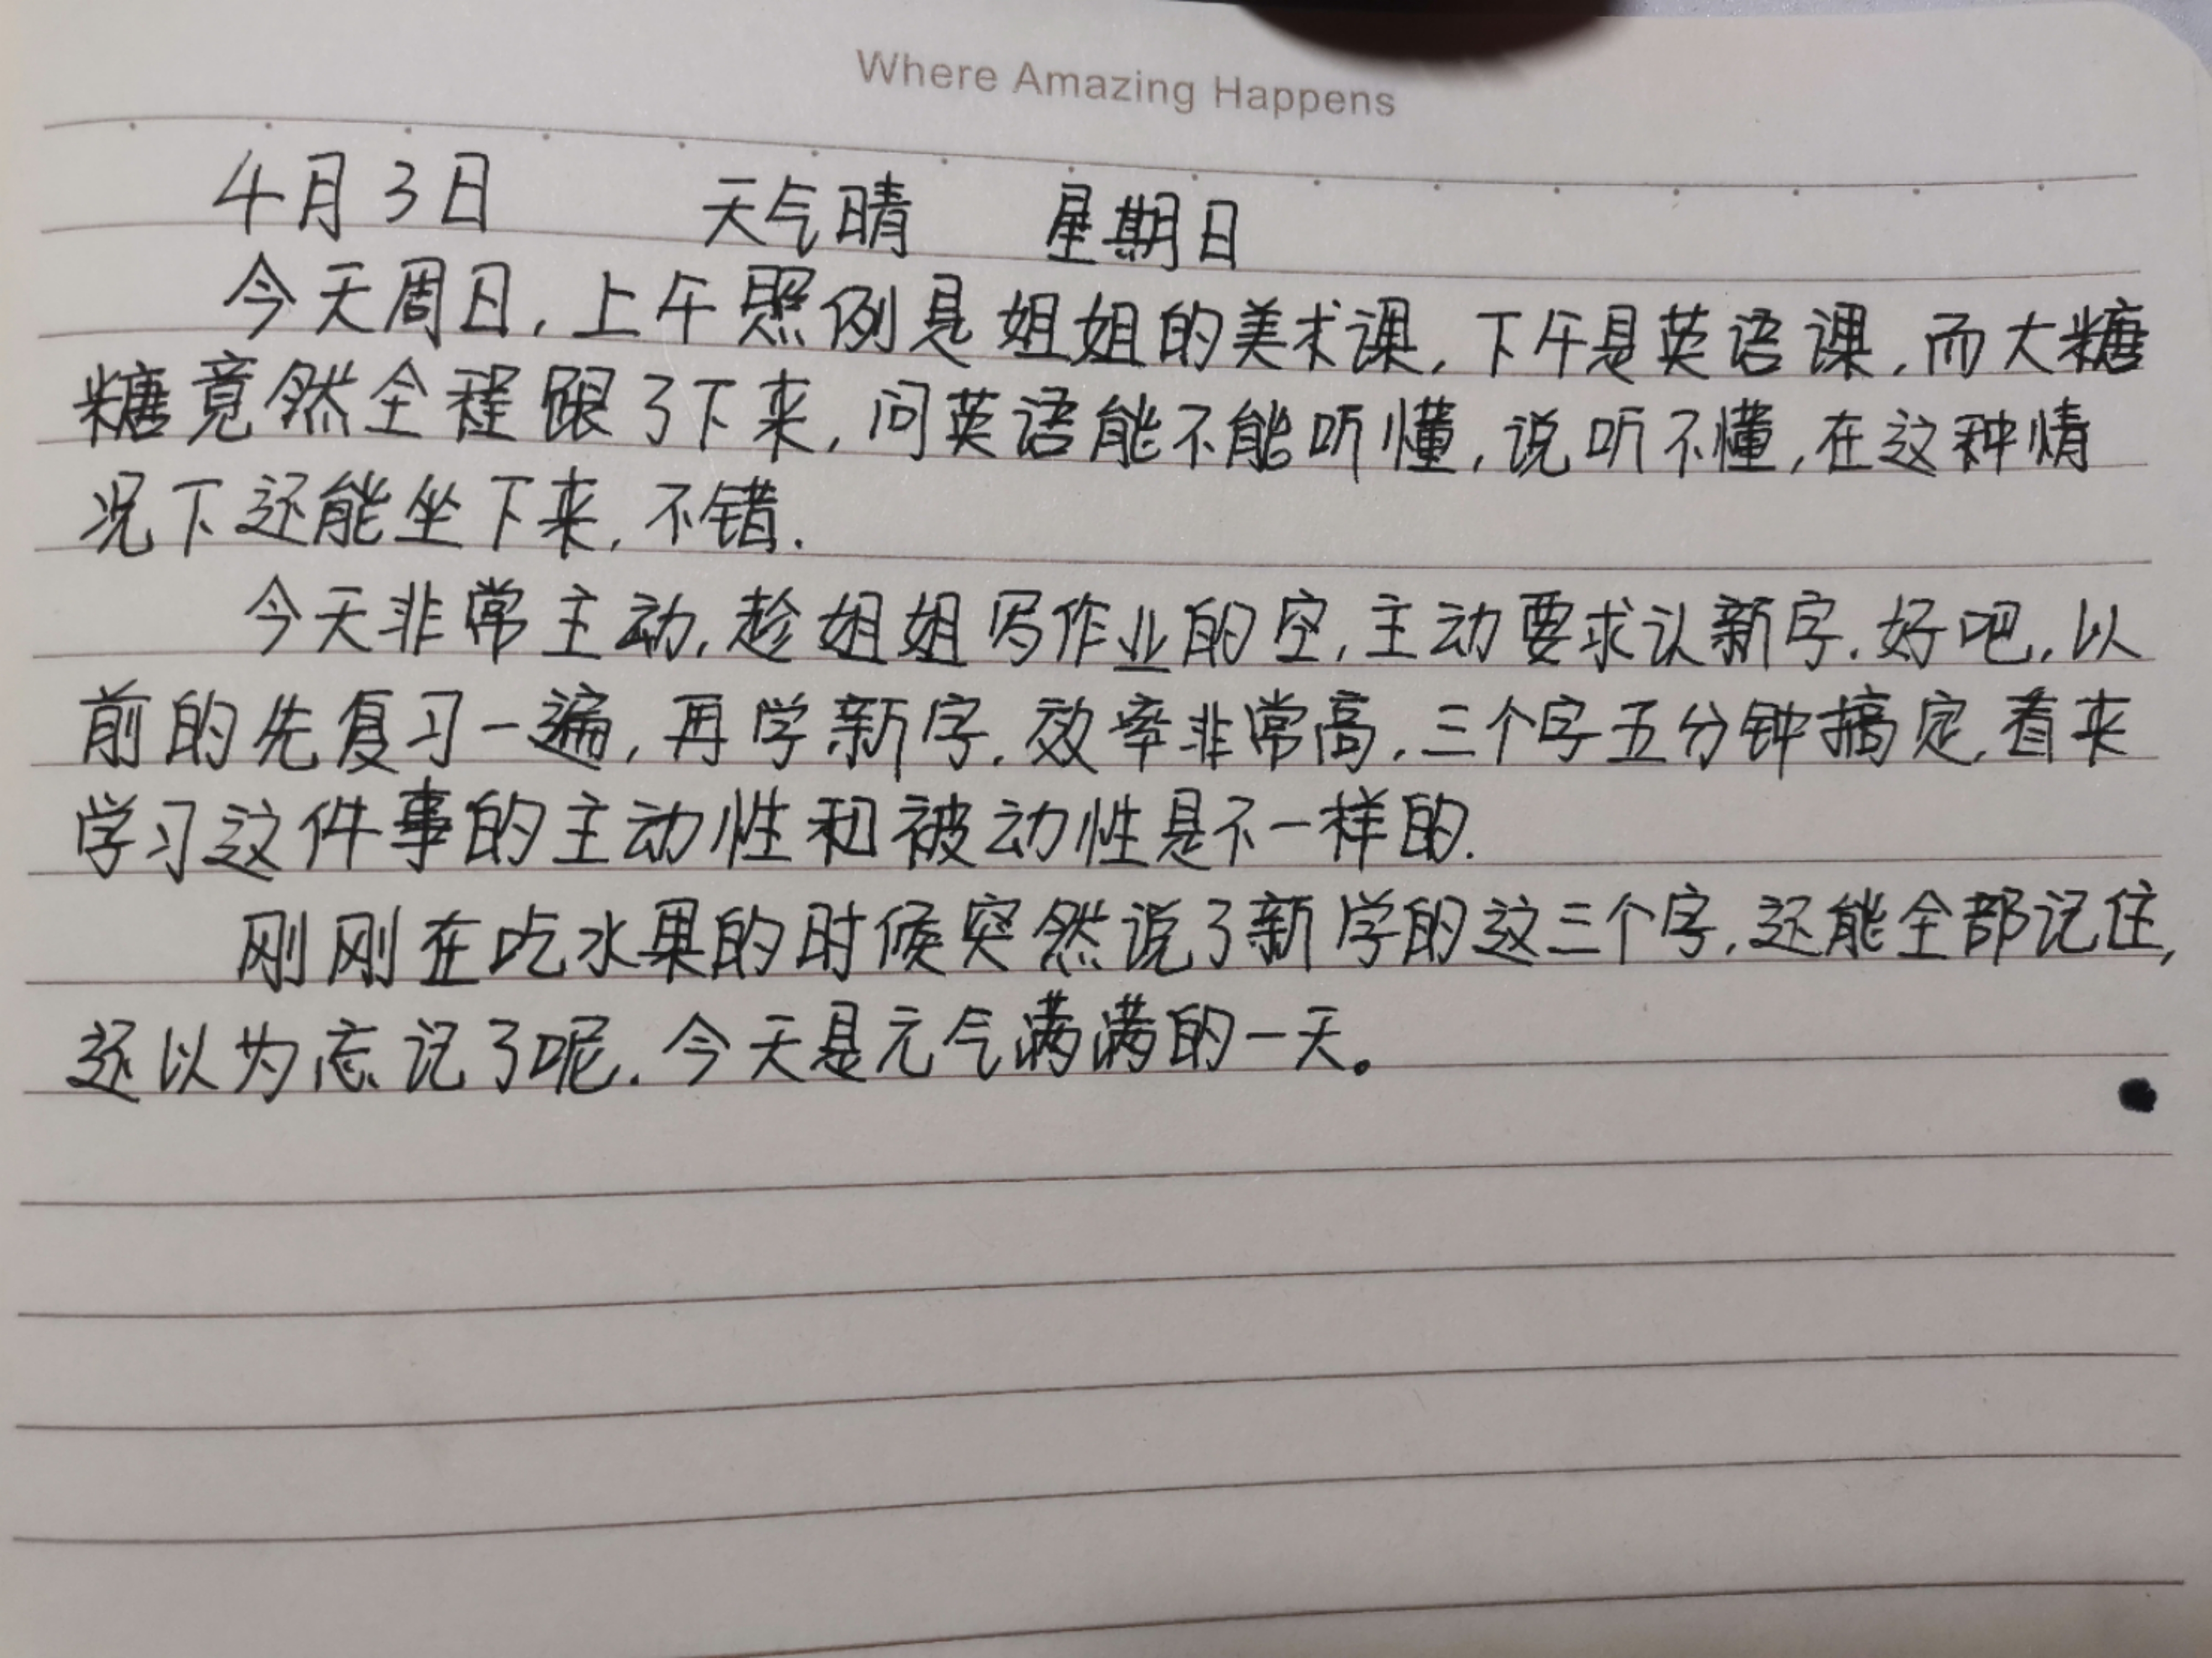 Where Amazing Happens
4月3日 天气晴 星期日
今天周日,上午照例是姐姐的美术课,下午是英语课,而大糖
糖竟然全程跟了下来,问英语能不能听懂,说听不懂,在这种情
况下还能坐下来,不错.
今天非常主动,趁姐姐写作业的空,主动要求认新字.好吧,以
前的先复习一遍,再学新字.效率非常高,三个字五分钟搞定,看来
学习这件事的主动性和被动性是不一样的.
刚刚在吃水果的时候突然说了新学的这三个字,还能全部记住,
还以为忘记了呢.今天是元气满满的一天。